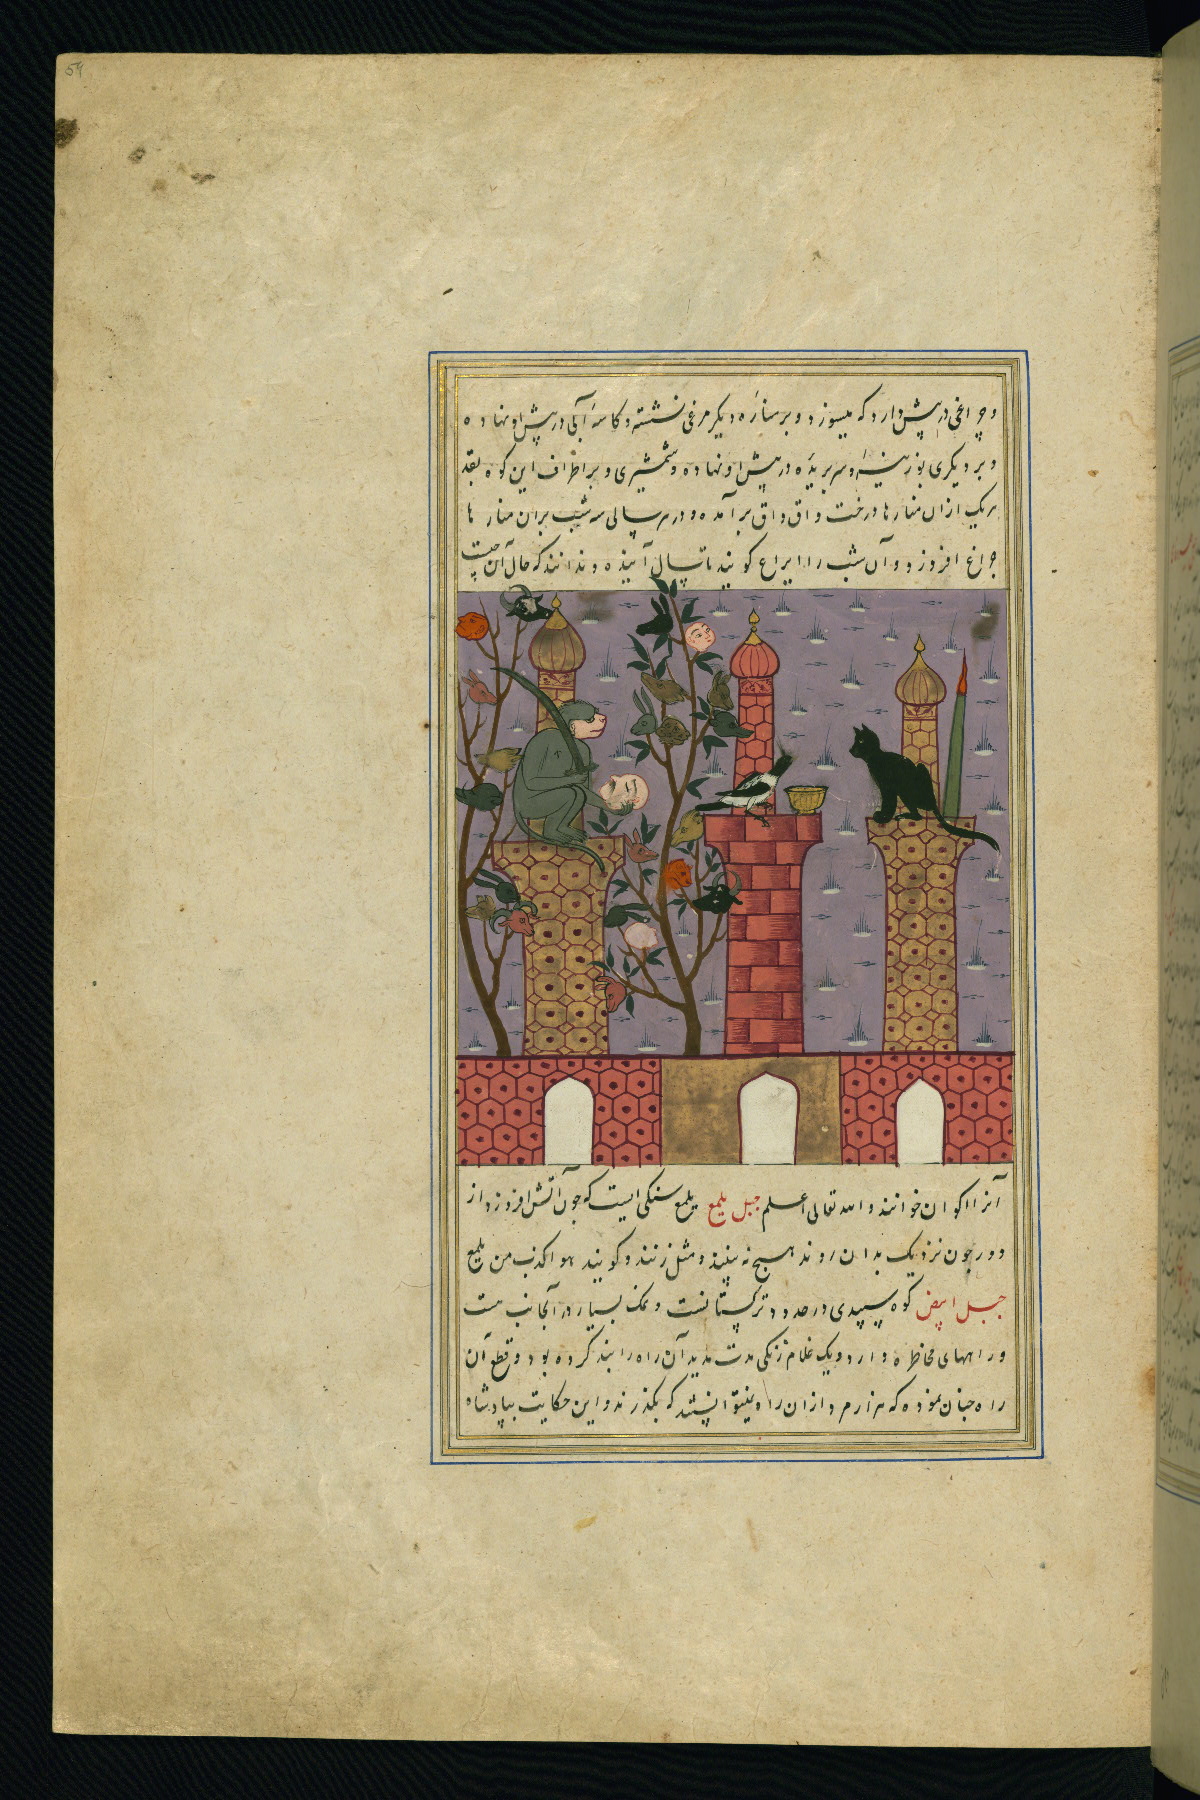 54
و چراغی در پیش دارد که میسوزد و بر مناره دیکر مرغی نشسته و کاسهٔ آبی در پیش او نهاده
و بر دیکری بوزینهٔ و سر بریده در پیش او نهاده و شمشیری و بر اطراف این کوه بقد
هریک ازان منارها درخت واق واق برآمده و در هر سالی سه شب بران منارها
چراغ افروزد و آن شب را ایراع کویند تا سال آینده و ندانند که حال آن چیست
آنرا اکوان خوانند والله تعالی اعلم جبل یلمع یلمع سنکی است که چون آتش افروزد از
دور چون نزدیک بدان روند هیچ نه بینند و مثل زنند و کویند هو اکذب من یلمع
جبل ابیض کوه سپیدی در حدود ترکستانست و نمک بسیار در آنجانب هست
و راههای مخاطره دارد و یک غلام زنکی مدت مدید آن راه را بند کرده بود و قطع آن
راه چنان نموده که هزار مرد ازان راه نیتوانستند که بکذرند و این حکایت بپادشاه